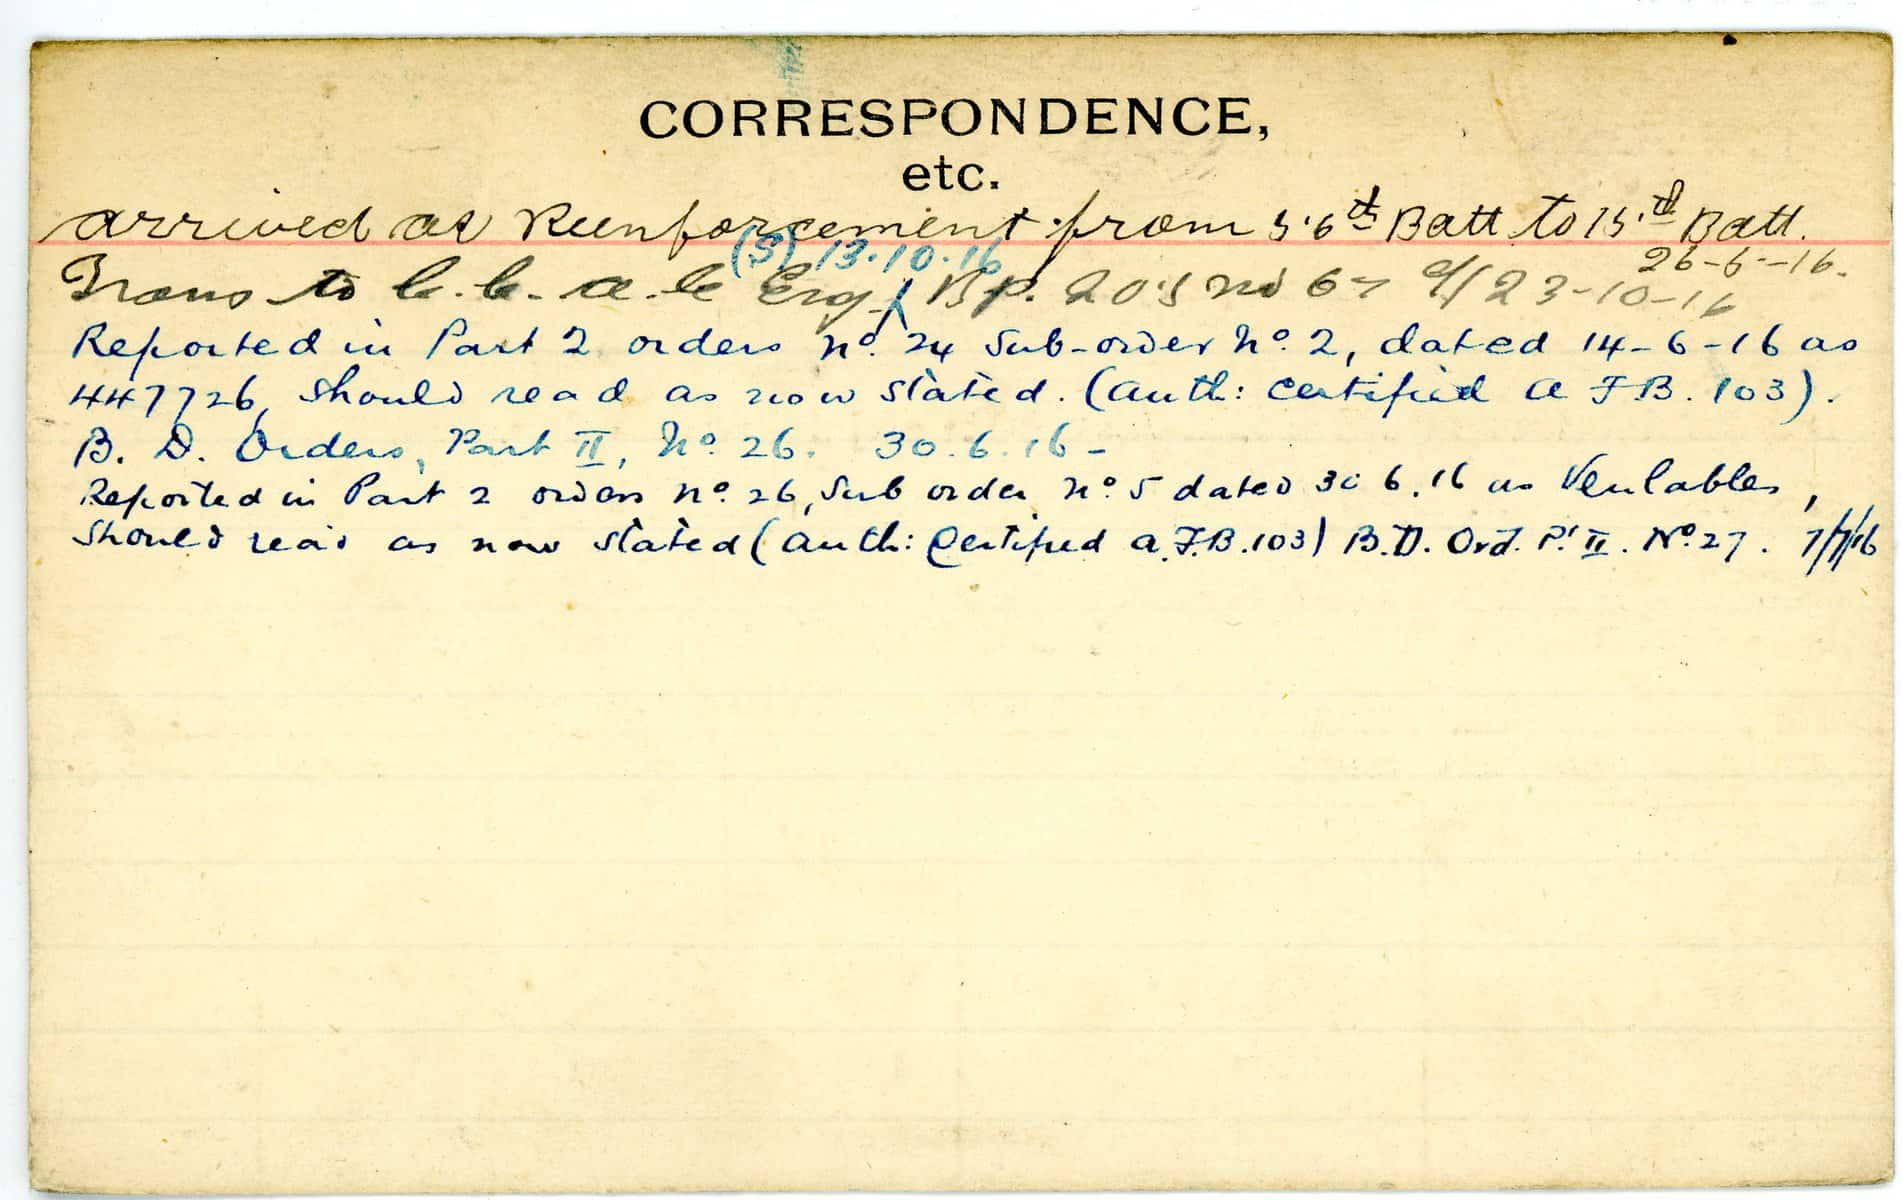 CORRESPONDENCE,
etc.
arrived as Reinforcement from 56th Batt to 15th Batt.
(S) 13.10.16
26-6-16.
Trans to C.C.A.C Eng BP. 2 O's No 67 d/23-10-16
Reported in Part 2 orders No. 24 Sub-order No. 2, dated 14-6-16 as
447726, Should read as now stated. (Auth: Certified A F.B. 103).
B. D. Orders, Part II, No. 26. 30.6.16-
Reported in Part 2 orders No. 26, Sub order No. 5 dated 30 6.16 as Venlables,
Should read as now stated (Auth: Certified A.F.B.103) B.D. Ord. Pt II. No. 27. 7/7/16